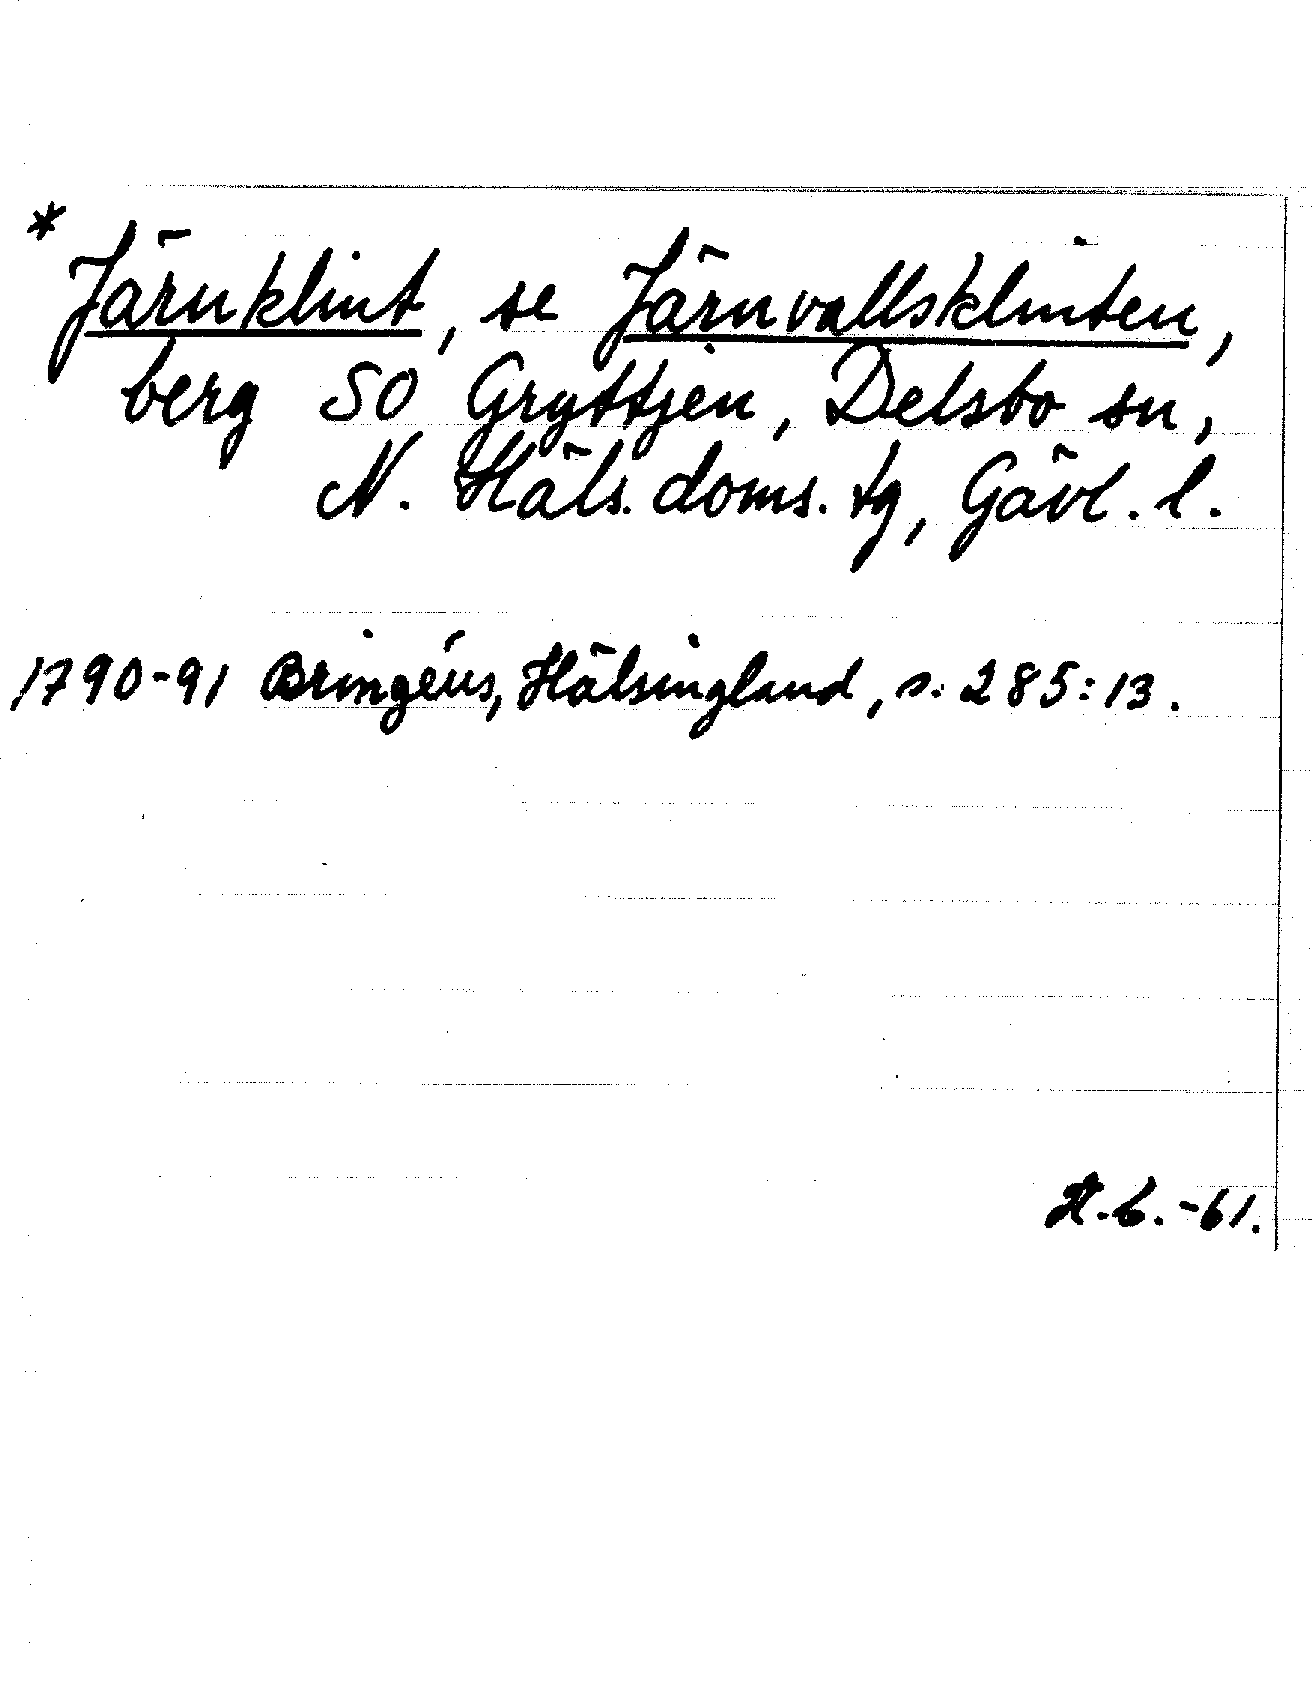 * Järnklint, se Järnvallsklinten,
berg SO Gryttjen, Delsbo sn,
N. Häls. doms. tg, Gävl. l.
1790-91 Bringéus, Hälsingland, s. 285:13.
H.C.-61.